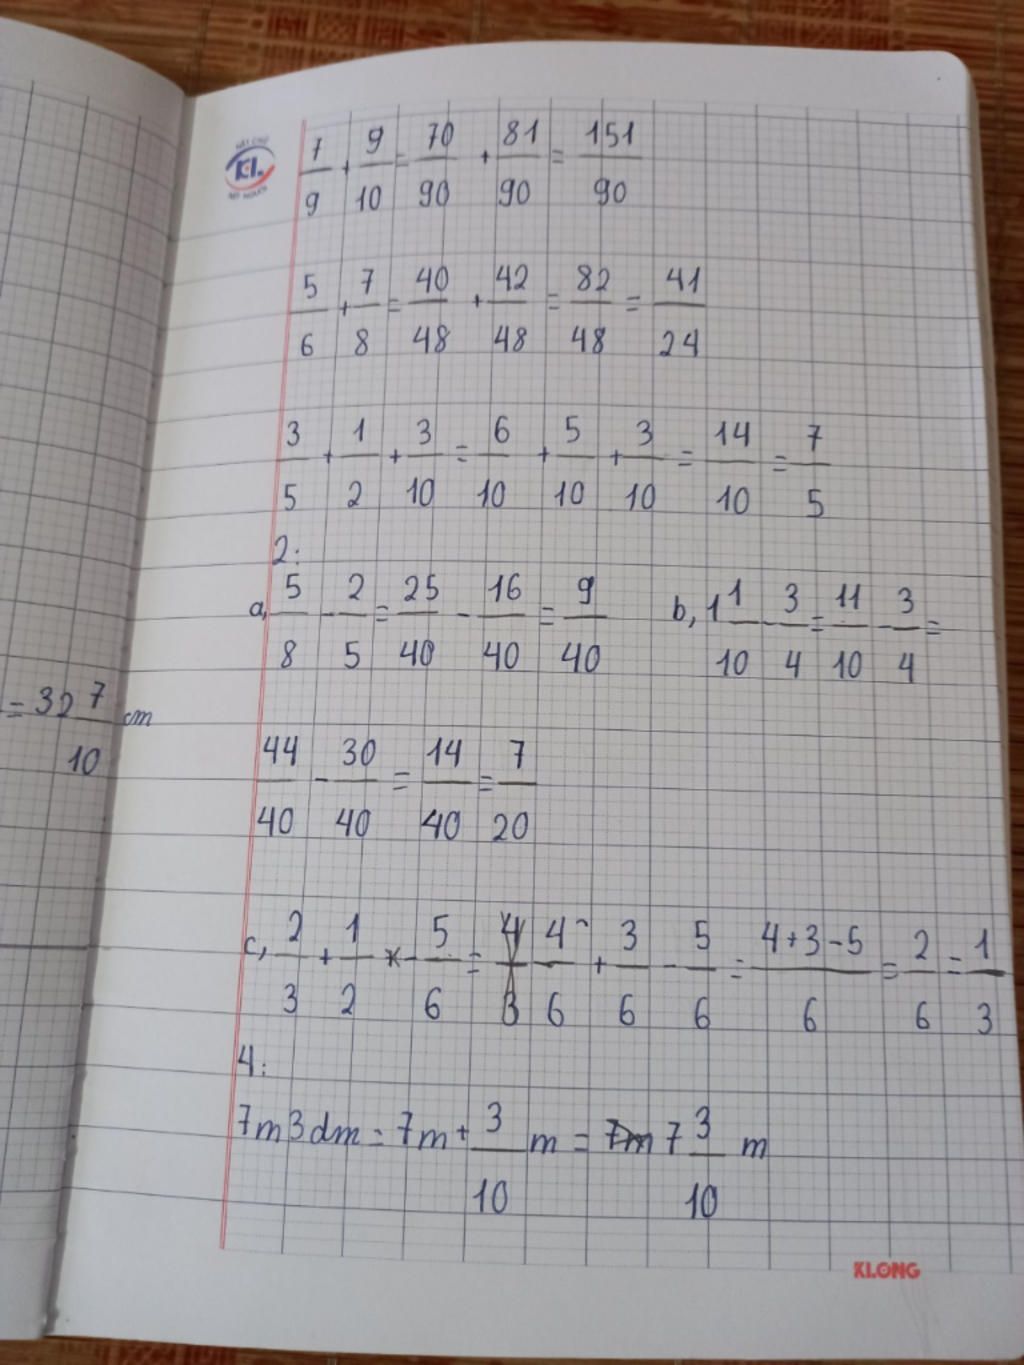 NÉT CHỮ
KL.
NẾT NGƯỜI
7/9 + 9/10 = 70/90 + 81/90 = 151/90
5/6 + 7/8 = 40/48 + 42/48 = 82/48 = 41/24
3/5 + 1/2 + 3/10 = 6/10 + 5/10 + 3/10 = 14/10 = 7/5
2:
a, 5/8 - 2/5 = 25/40 - 16/40 = 9/40
b, 1 1/10 - 3/4 = 11/10 - 3/4 =
44/40 - 30/40 = 14/40 = 7/20
c, 2/3 + 1/2 - 5/6 = 4/6 + 3/6 - 5/6 = (4+3-5)/6 = 2/6 = 1/3
4:
7m3dm = 7m + 3/10 m = 7 3/10 m
= 32 7/10 cm
KLONG